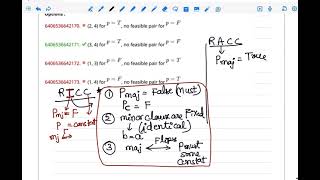 Options :
6406536642170. ✖ (2, 4) for P = T, no feasible pair for P = F
6406536642171. ✔ (3, 4) for P = T, no feasible pair for P = F
6406536642172. ✖ (1, 4) for P = T, no feasible pair for P = F
6406536642173. ✖ (1, 3) for P = T, no feasible pair for P = F
RACC
Pmaj = True
RICC
Pmj = F
P = constat
mj
① Pmaj = False (Must)
Pc = F
② minor clause are Fixed
(identical)
b = a
③ maj Flops P must same constat